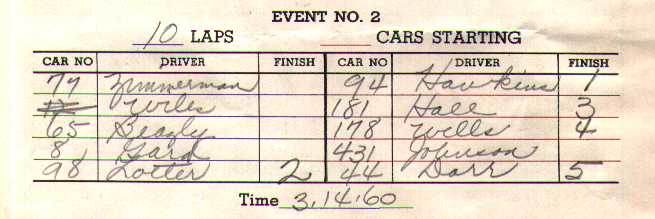 EVENT NO. 2
10 LAPS ____ CARS STARTING
CAR NO DRIVER FINISH CAR NO DRIVER FINISH
77 Zimmerman 94 Hawkins 1
Wiles 181 Hall 3
65 Beagly 178 Wells 4
8 Gard 431 Johnson
98 Lotter 2 44 Darr 5
Time 3.14.60